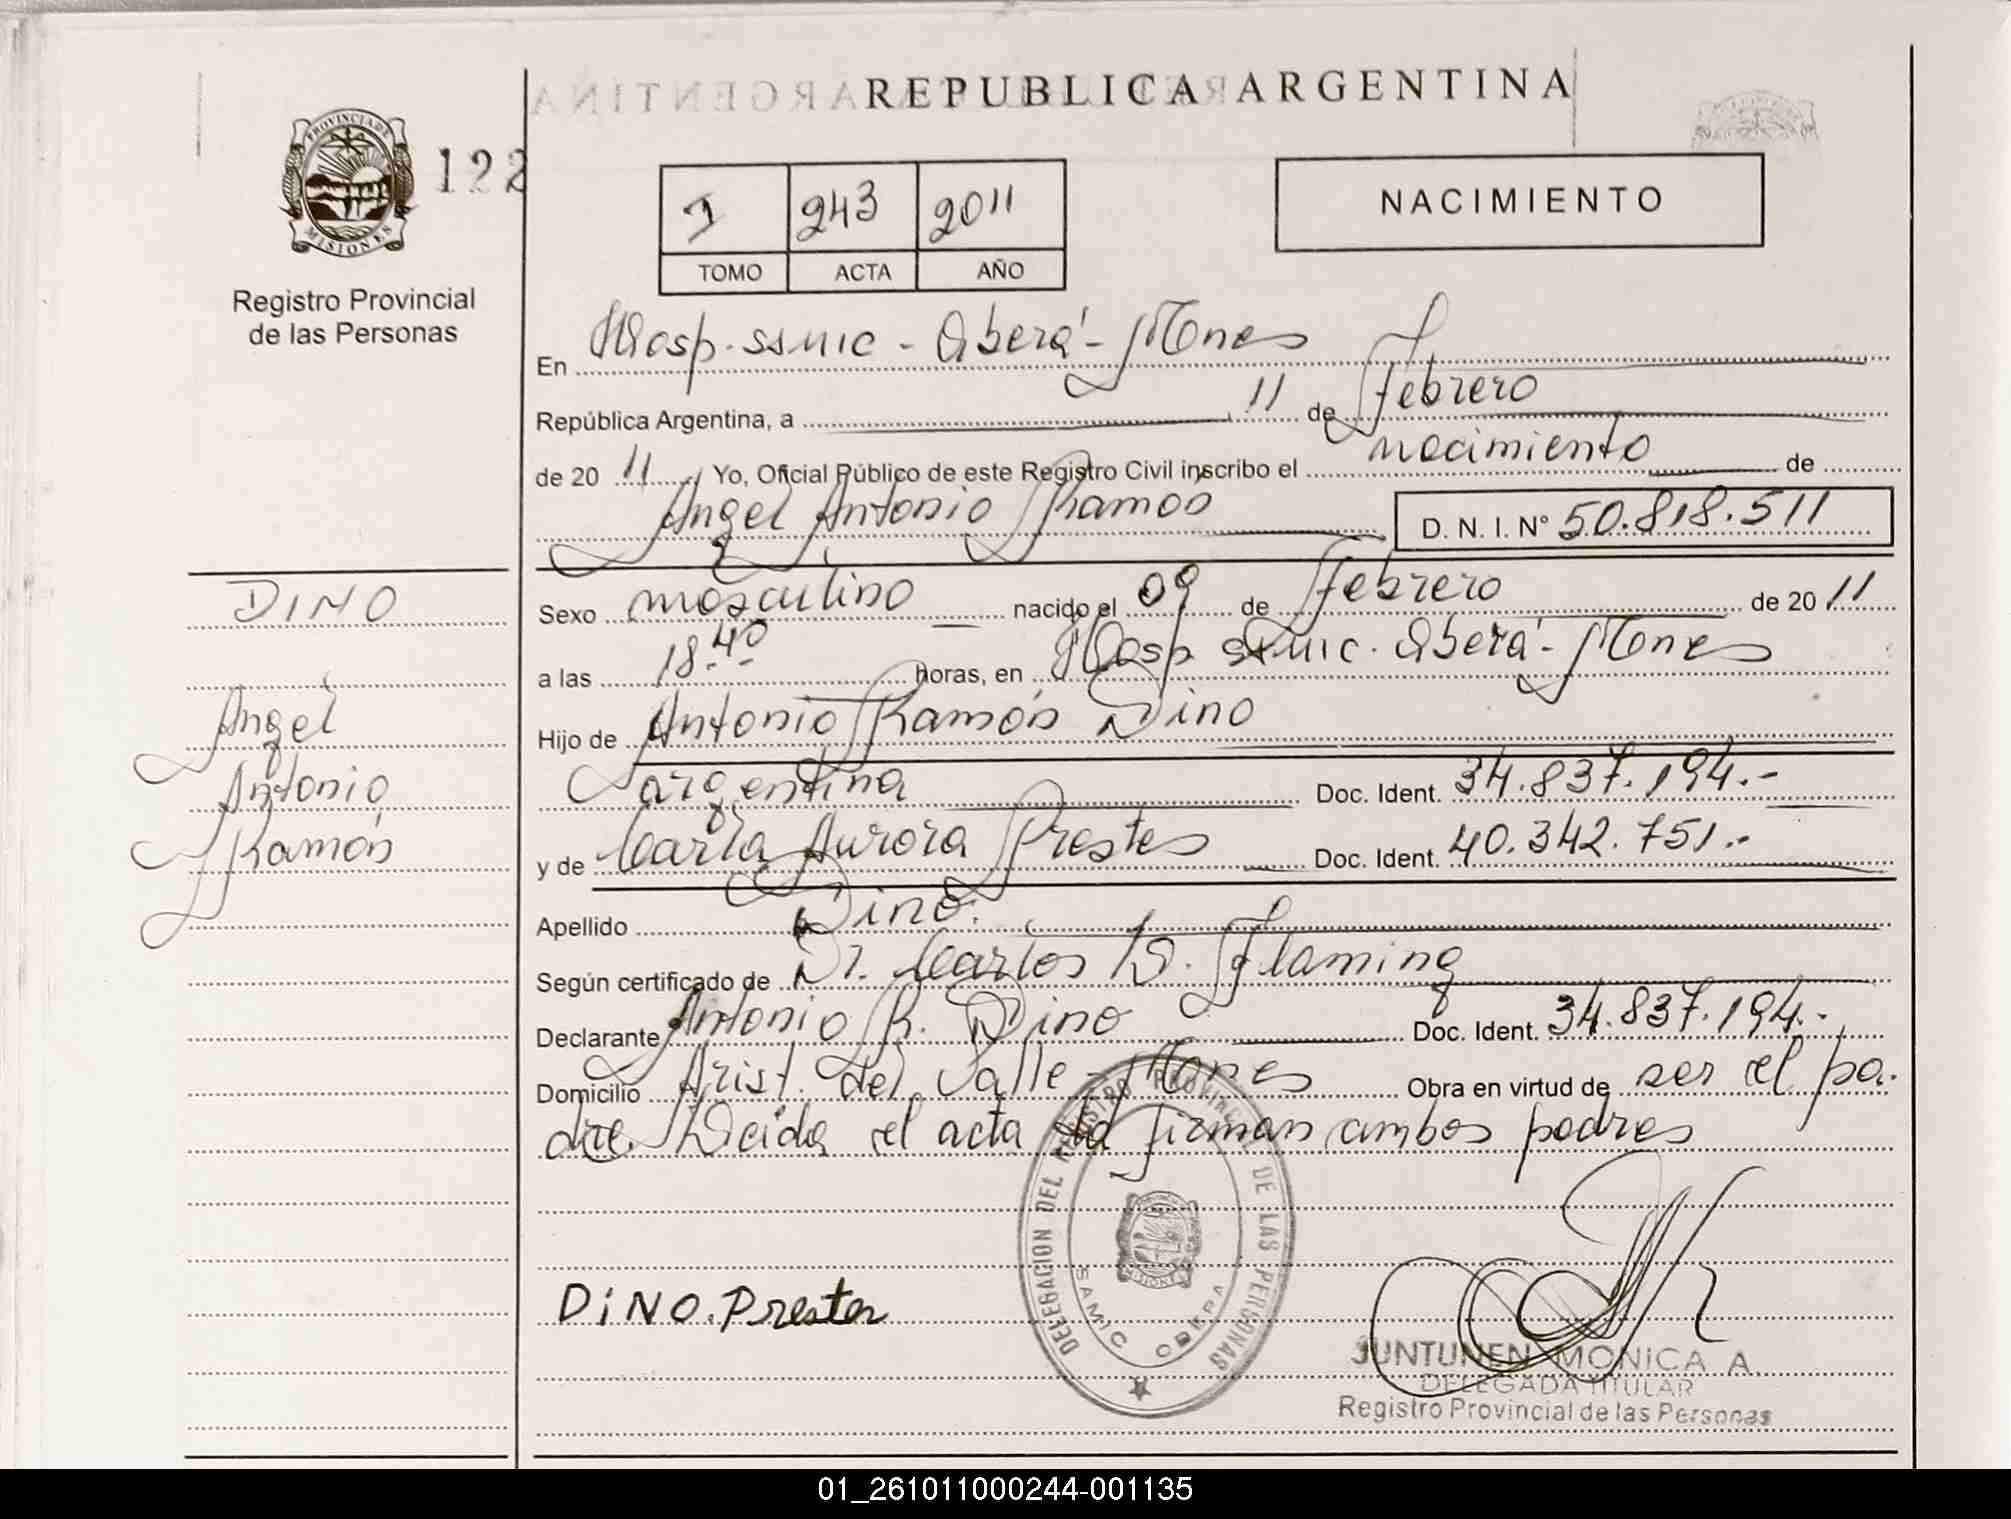 REPUBLICA ARGENTINA
PROVINCIA DE
MISIONES
122
Registro Provincial
de las Personas
I 243 2011
TOMO ACTA AÑO
NACIMIENTO
En Hosp. ssmic - Oberá - Mnes
República Argentina, a 11 de febrero
de 20 11 Yo, Oficial Público de este Registro Civil inscribo el nacimiento de
Angel Antonio Ramón D. N. I. N° 50.818.511
DINO
Angel
Antonio
Ramón
Sexo masculino nacido el 09 de febrero de 20 11
a las 18.40 horas, en Hosp. ssmic. Oberá - Mnes
Hijo de Antonio Ramón Dino
argentina Doc. Ident. 34.837.194.-
y de Carla Aurora Prestes Doc. Ident. 40.342.751.-
Apellido Dino.
Según certificado de Dr. Carlos D. Flaming
Declarante Antonio R. Dino Doc. Ident. 34.837.194.-
Domicilio Arist. del Valle - Mnes Obra en virtud de ser el pa-
dre. Leida el acta la firman ambos padres
DELEGACION DEL REGISTRO PROVINCIAL DE LAS PERSONAS
SAMIC OBERA
MISIONES
DiNO. Prestes
JUNTUNEN MONICA A.
DELEGADA TITULAR
Registro Provincial de las Personas
01_261011000244-001135